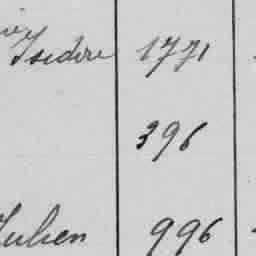 Isidore 1771
396
Julien 996